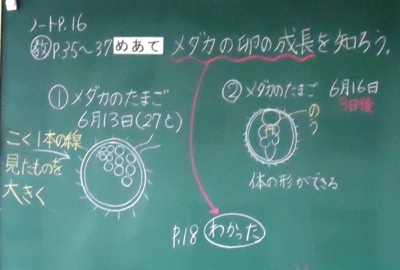 ノートP.16
教P.35〜37 めあて メダカの卵の成長を知ろう。
① メダカのたまご
6月13日(27℃)
こく1本の線
見たものを
大きく
② メダカのたまご 6月16日
3日後
のう
体の形ができる
P.18 わかった